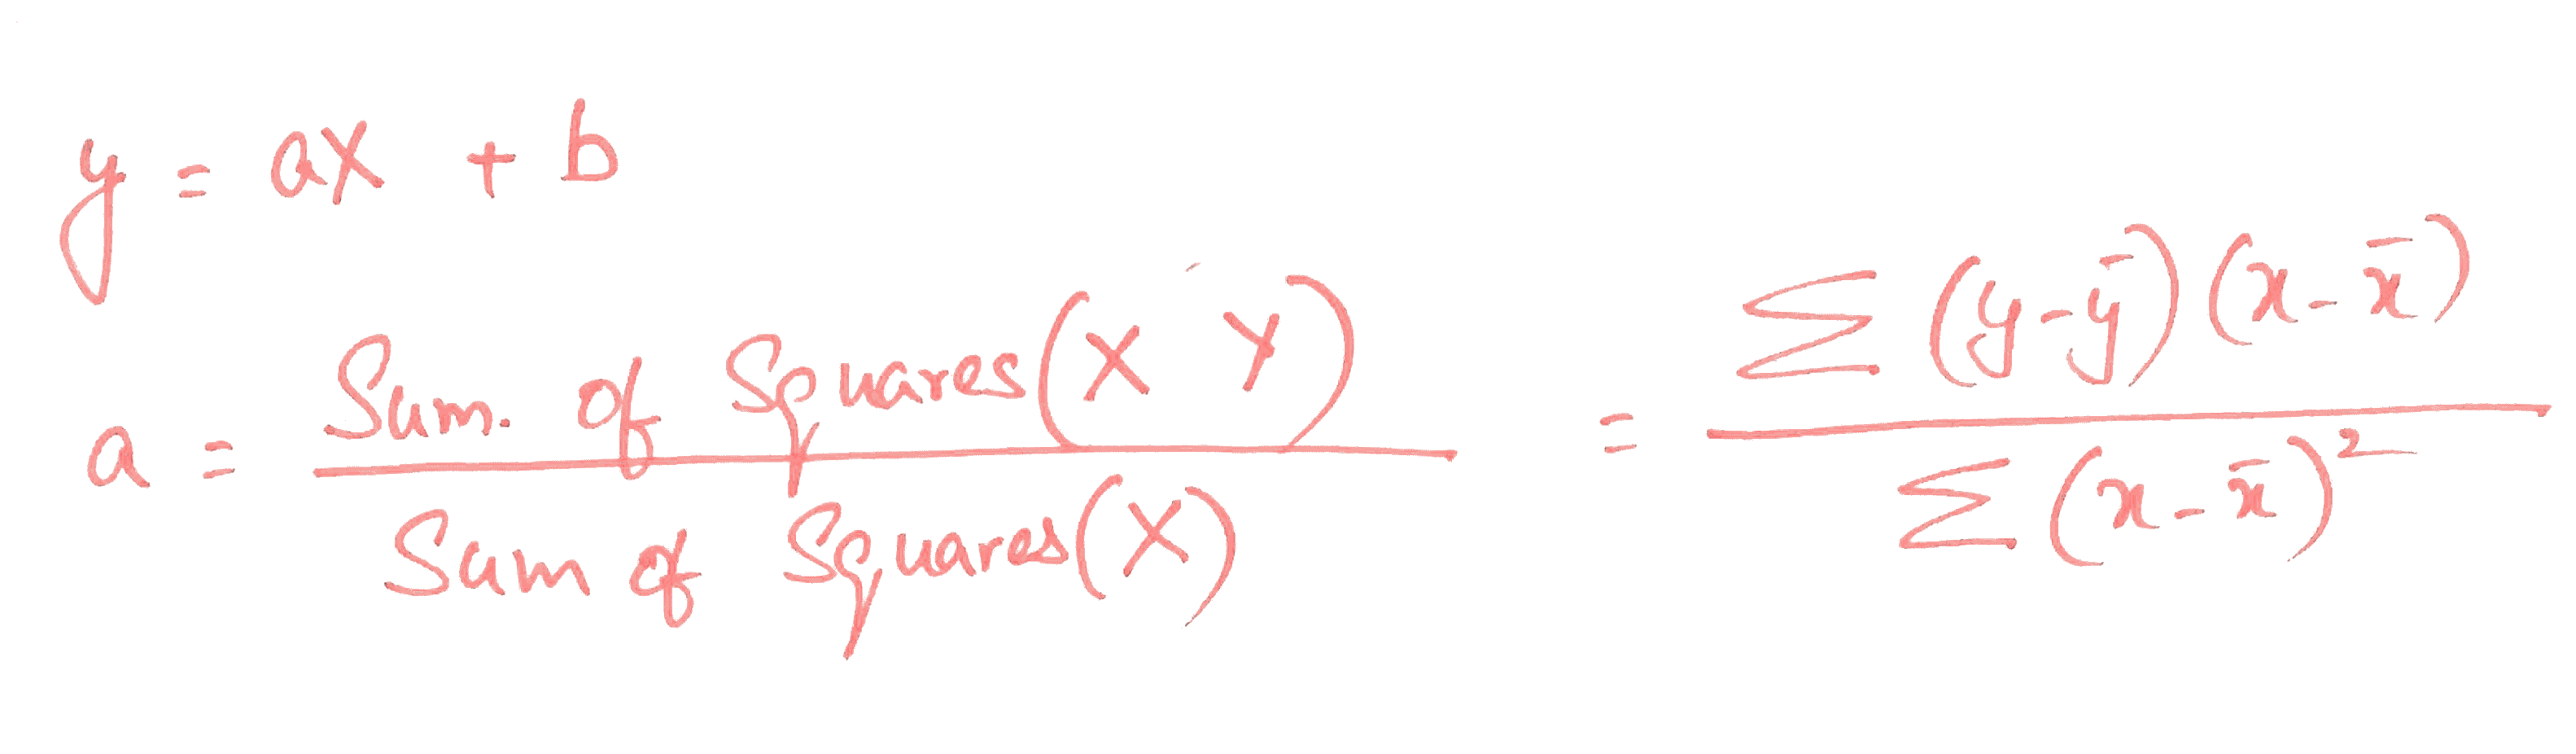 y = aX + b
a = Sum. of Squares(X Y) / Sum of Squares(X) = Σ(y-ȳ)(x-x̄) / Σ(x-x̄)²